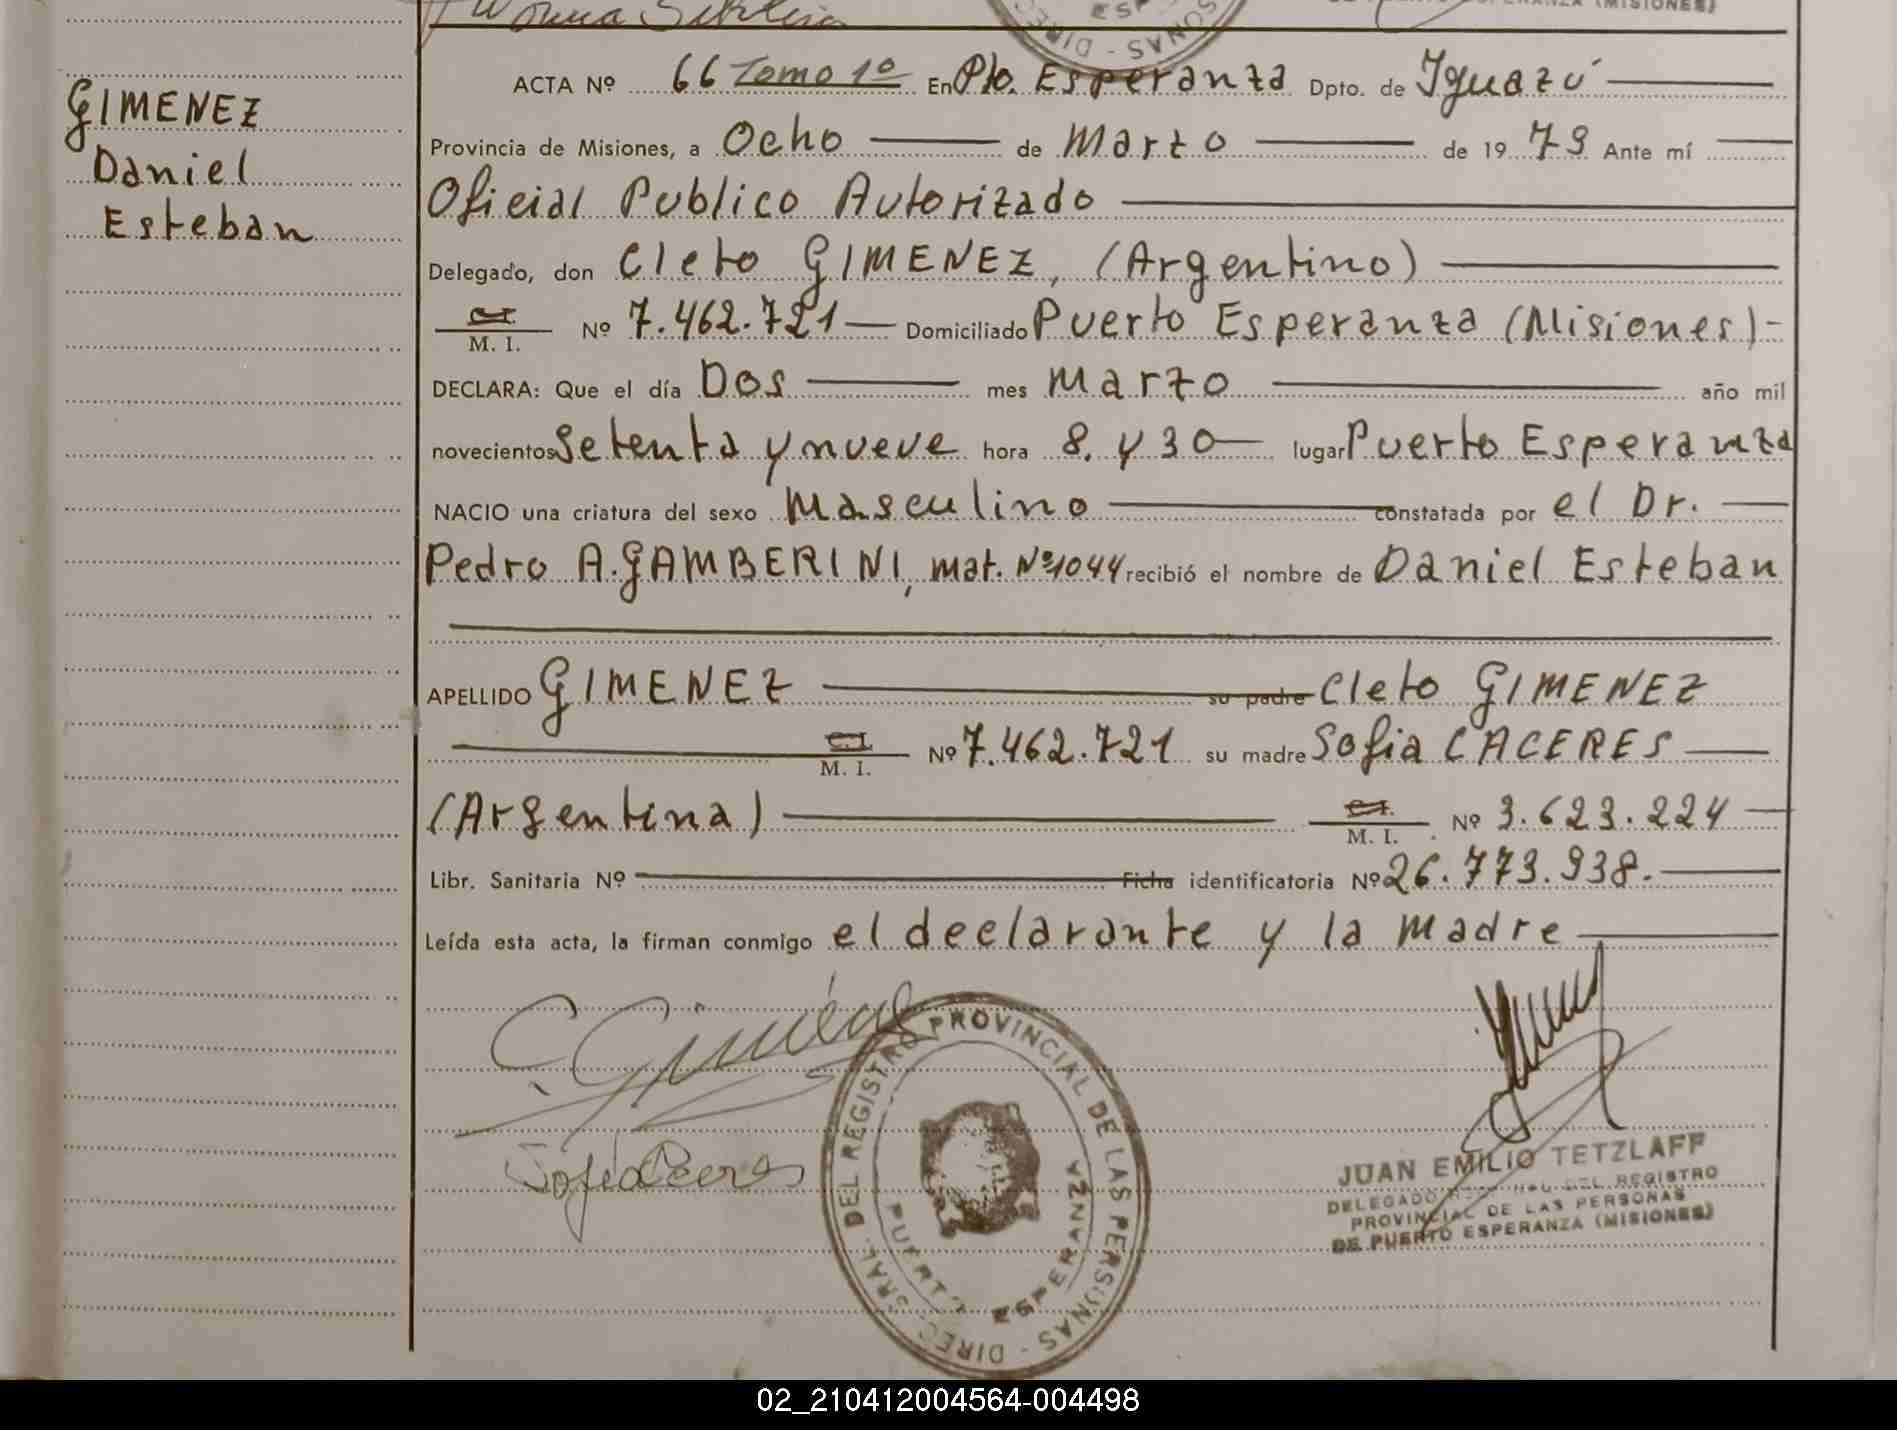 ESPERANZA (MISIONES)
GIMENEZ
Daniel
Esteban
ACTA Nº 66 Tomo 1º En Pto. Esperanza Dpto. de Iguazú
Provincia de Misiones, a Ocho de Marzo de 1979 Ante mí
Oficial Publico Autorizado
Delegado, don Cleto GIMENEZ, (Argentino)
C.I. M. I. Nº 7.462.721 Domiciliado Puerto Esperanza (Misiones)-
DECLARA: Que el día Dos mes Marzo año mil
novecientos Setenta y nueve hora 8. y 30 lugar Puerto Esperanza
NACIO una criatura del sexo Masculino constatada por el Dr.
Pedro A. GAMBERINI, mat. Nº 1044 recibió el nombre de Daniel Esteban
APELLIDO GIMENEZ su padre Cleto GIMENEZ
C.I. M. I. Nº 7.462.721 su madre Sofia CACERES
(Argentina) C.I. M. I. Nº 3.623.224
Libr. Sanitaria Nº Ficha identificatoria Nº 26.773.938.
Leída esta acta, la firman conmigo el declarante y la Madre
C Giménez
Sofia
DEL REGISTRO PROVINCIAL DE LAS PERSONAS - DIREC
PUERTO ESPERANZA
JUAN EMILIO TETZLAFF
DELEGADO DEL REGISTRO
PROVINCIAL DE LAS PERSONAS
DE PUERTO ESPERANZA (MISIONES)
02_210412004564-004498